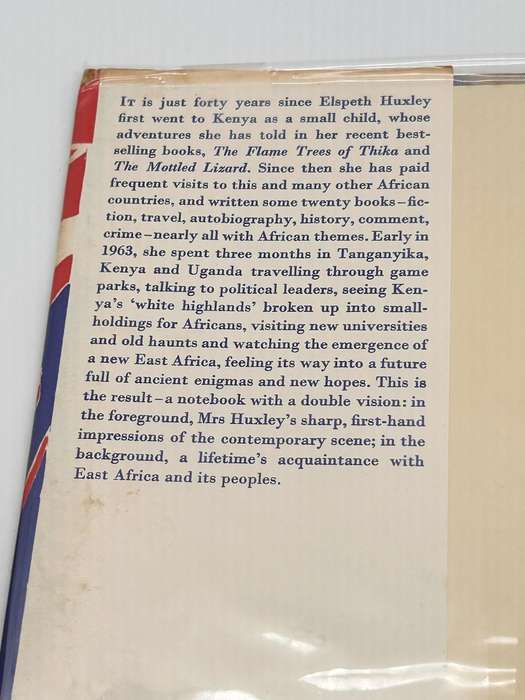 IT is just forty years since Elspeth Huxley
first went to Kenya as a small child, whose
adventures she has told in her recent best-
selling books, The Flame Trees of Thika and
The Mottled Lizard. Since then she has paid
frequent visits to this and many other African
countries, and written some twenty books–fic-
tion, travel, autobiography, history, comment,
crime–nearly all with African themes. Early in
1963, she spent three months in Tanganyika,
Kenya and Uganda travelling through game
parks, talking to political leaders, seeing Ken-
ya's 'white highlands' broken up into small-
holdings for Africans, visiting new universities
and old haunts and watching the emergence of
a new East Africa, feeling its way into a future
full of ancient enigmas and new hopes. This is
the result–a notebook with a double vision: in
the foreground, Mrs Huxley's sharp, first-hand
impressions of the contemporary scene; in the
background, a lifetime's acquaintance with
East Africa and its peoples.